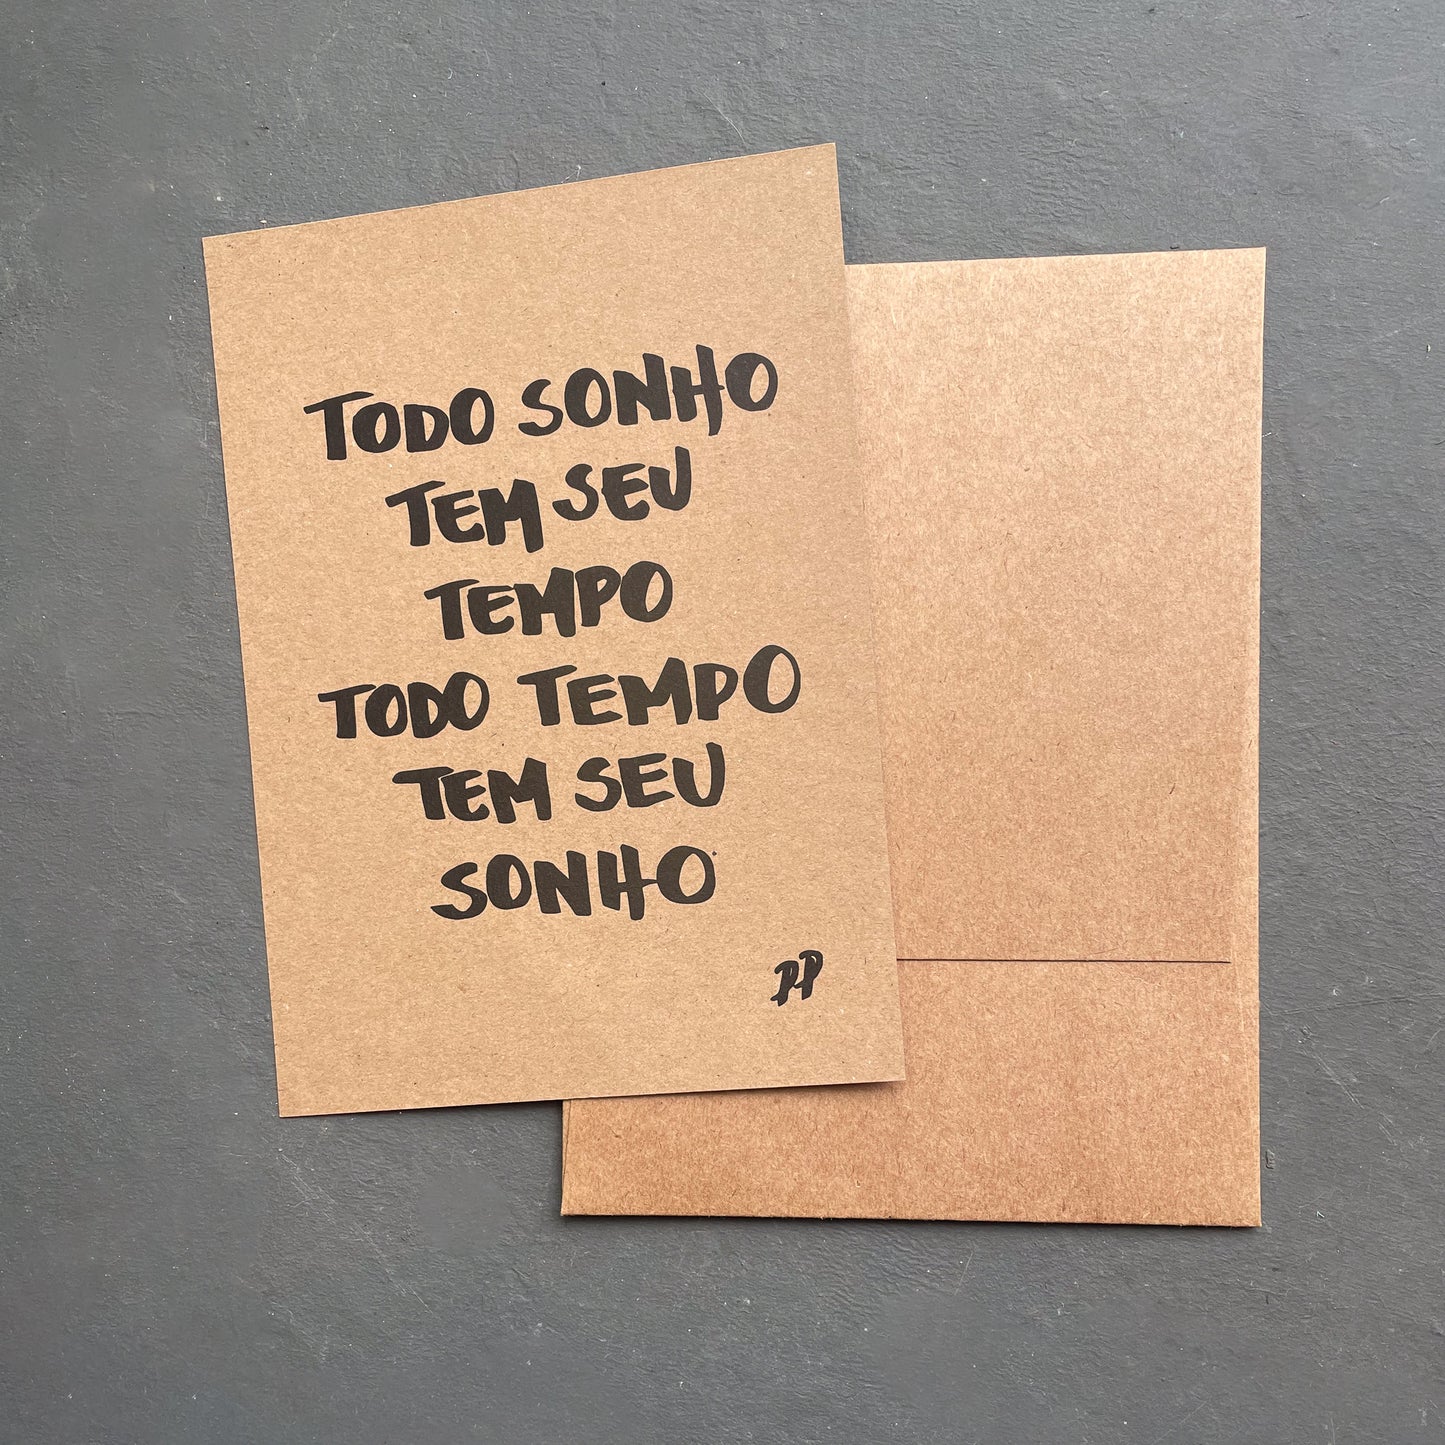 TODO SONHO
TEM SEU
TEMPO
TODO TEMPO
TEM SEU
SONHO
PP